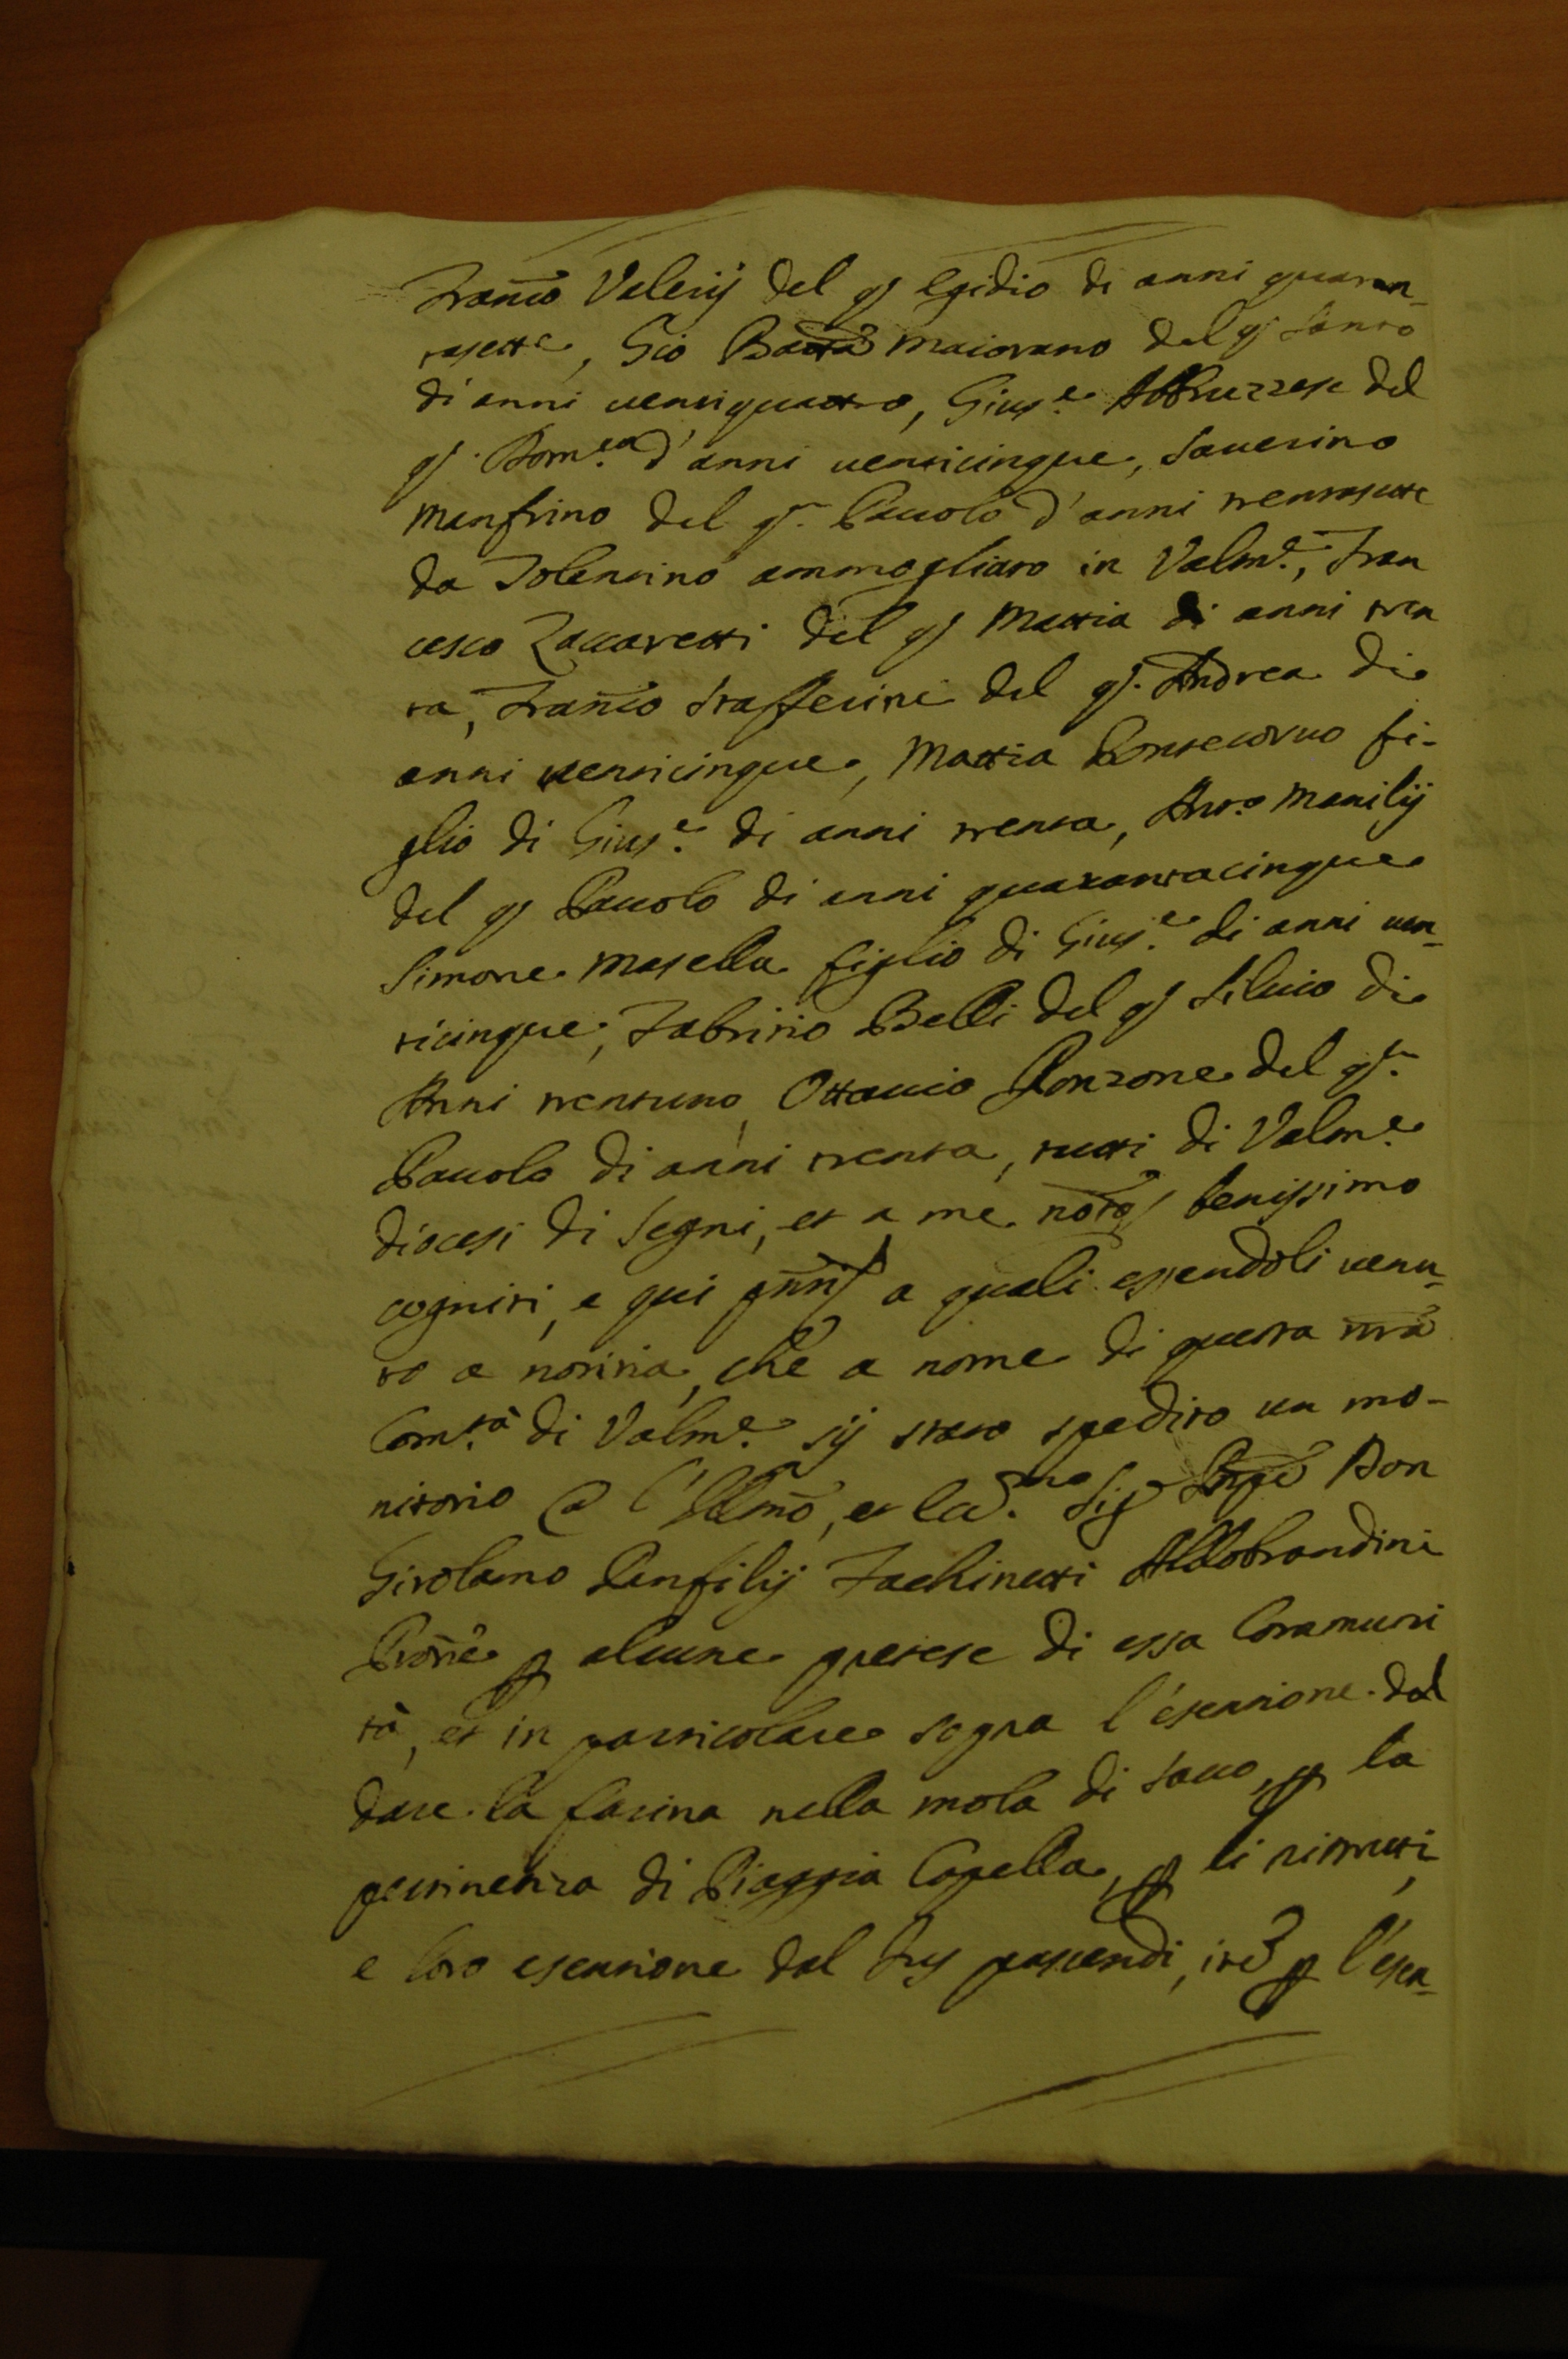 Franco Valerij del q Egidio di anni quaran-
tasette, Gio Batta Maiorano del q Santo
di anni uentiquattro, Gius.e Abbruzzese del
q Dom.co d'anni uenticinque, Sauerino
Manfrino del q. Pauolo d'anni trentasette
da Tolentino ammogliato in Valm.e, Fran
cesco Zaccaretti del q Mattia di anni tren
ta, Franco Stafferini del q. Andrea di
anni uenticinque, Mattia Pontecoruo fi-
glio di Gius.e di anni trenta, Ant.o Manilij
del q Pauolo di anni quarantacinque
Simone Masella figlio di Gius.e di anni uen-
ticinque, Fabritio Belli del q Siluio di
Anni trentuno, Ottauio Ponzone del q.
Pauolo di anni trenta, tutti di Valm.e
diocesi di Segni, et a me noto benissimo
cogniti, e qui pnti a quali essendoli uenu-
to a notitia, che a nome di questa nra
Com.tà di Valm.e sij stato spedito un mo-
nitorio @ l'Illmo, et Ecc.mo Sig Prnpe Don
Girolamo Panfilij Fachinetti Aldobrandini
Prone p alcune pretese di essa Communi
tà, et in particolare sopra l'esentione dal
dare la farina nella mola di Sacco, p la
pertinenza di Piaggia Capella, p li ristretti,
e loro esentione dal Jus pascendi, ite p l'esen-